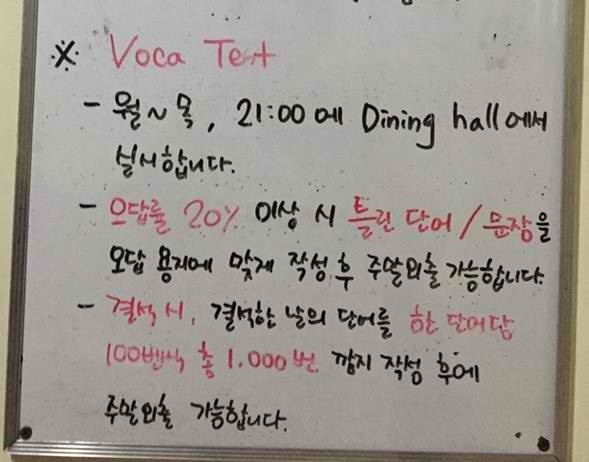 ※ Voca Test
- 월~목, 21:00에 Dining hall에서
실시합니다.
- 오답률 20% 이상 시 틀린 단어/문장을
오답 용지에 맞게 작성 후 주말외출 가능합니다.
- 결석 시, 결석한 날의 단어를 한 단어당
100번씩 총 1.000번 깜지 작성 후에
주말외출 가능합니다.